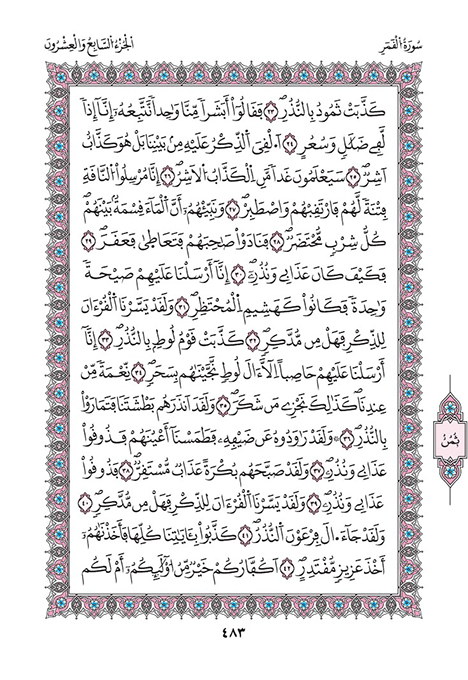 سُورَةُ الْقَمَرِ
الْجُزْءُ السَّابِعُ وَالْعِشْرُونَ
كَذَّبَتْ ثَمُودُ بِالنُّذُرِ ٢٣ فَقَالُوٓاْ أَبَشَراٗ مِّنَّا وَٰحِداٗ نَّتَّبِعُهُۥٓ إِنَّآ إِذاٗ
لَّفِے ضَلَٰلٖ وَسُعُرٍ ٢٤ اَ۟لْقِيَ اَ۬لذِّكْرُ عَلَيْهِ مِنۢ بَيْنِنَا بَلْ هُوَ كَذَّابٌ
اَشِرٞ ٢٥ سَيَعْلَمُونَ غَداٗ مَّنِ اِ۬لْكَذَّابُ اُ۬لَاشِرُ ٢٦ إِنَّا مُرْسِلُواْ اُ۬لنَّاقَةِ
فِتْنَةٗ لَّهُمْ فَارْتَقِبْهُمْ وَاصْطَبِرْ ٢٧ وَنَبِّئْهُمُۥٓ أَنَّ اَ۬لْمَآءَ قِسْمَةُۢ بَيْنَهُمْ
كُلُّ شِرْبٖ مُّحْتَضَرٞ ٢٨ فَنَادَوْاْ صَاحِبَهُمْ فَتَعَاط۪يٰ فَعَقَرَ ٢٩
فَكَيْفَ كَانَ عَذَابِے وَنُذُرِۦٓ ٣٠ إِنَّآ أَرْسَلْنَا عَلَيْهِمْ صَيْحَةٗ
وَٰحِدَةٗ فَكَانُواْ كَهَشِيمِ اِ۬لْمُحْتَظِرِ ٣١ وَلَقَدْ يَسَّرْنَا اَ۬لْقُرْءَانَ
لِلذِّكْرِ فَهَلْ مِن مُّدَّكِرٖ ٣٢ كَذَّبَتْ قَوْمُ لُوطِۢ بِالنُّذُرِ ٣٣ إِنَّآ
أَرْسَلْنَا عَلَيْهِمْ حَاصِباً اِلَّآ ءَالَ لُوطٖ نَّجَّيْنَٰهُم بِسَحَرٖ ٣٤ نِّعْمَةٗ مِّنْ
عِندِنَا كَذَٰلِكَ نَجْزِے مَن شَكَرَ ٣٥ وَلَقَدَ اَنذَرَهُم بَطْشَتَنَا فَتَمَارَوْاْ
بِالنُّذُرِ ٣٦ وَلَقَدْ رَٰوَدُوهُ عَن ضَيْفِهِۦ فَطَمَسْنَآ أَعْيُنَهُمْ فَذُوقُواْ
عَذَابِے وَنُذُرِۦ ٣٧ وَلَقَدْ صَبَّحَهُم بُكْرَةً عَذَابٞ مُّسْتَقِرّٞ ٣٨ فَذُوقُواْ
عَذَابِے وَنُذُرِۦ ٣٩ وَلَقَدْ يَسَّرْنَا اَ۬لْقُرْءَانَ لِلذِّكْرِ فَهَلْ مِن مُّدَّكِرٖ ٤٠
وَلَقَدْ جَآءَ الَ فِرْعَوْنَ اَ۬لنُّذُرُ ٤١ كَذَّبُواْ بِـَٔايَٰتِنَا كُلِّهَا فَأَخَذْنَٰهُمُۥٓ
أَخْذَ عَزِيزٖ مُّقْتَدِرٍ ٤٢ اَكُفَّارُكُمْ خَيْرٞ مِّنُ ا۟وْلَٰٓئِكُمُۥٓ أَمْ لَكُم
ثُمُنُ
٤٨٣